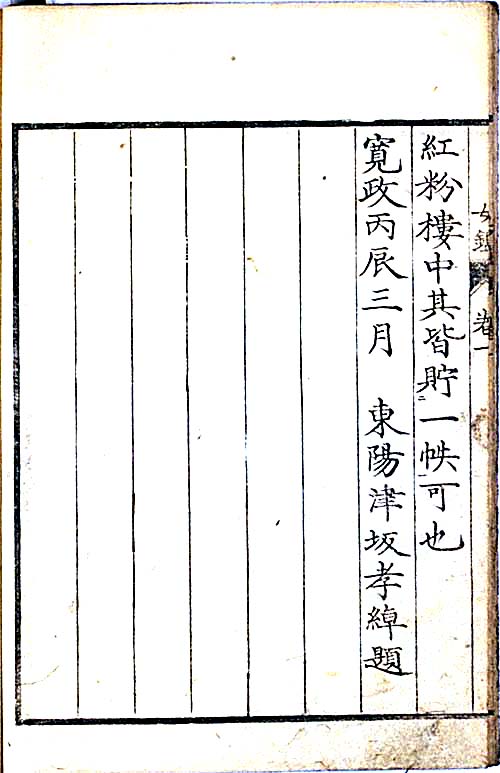 女鑑 卷一
紅粉樓中其皆貯二一帙一可也
寛政丙辰三月 東陽津坂孝綽題